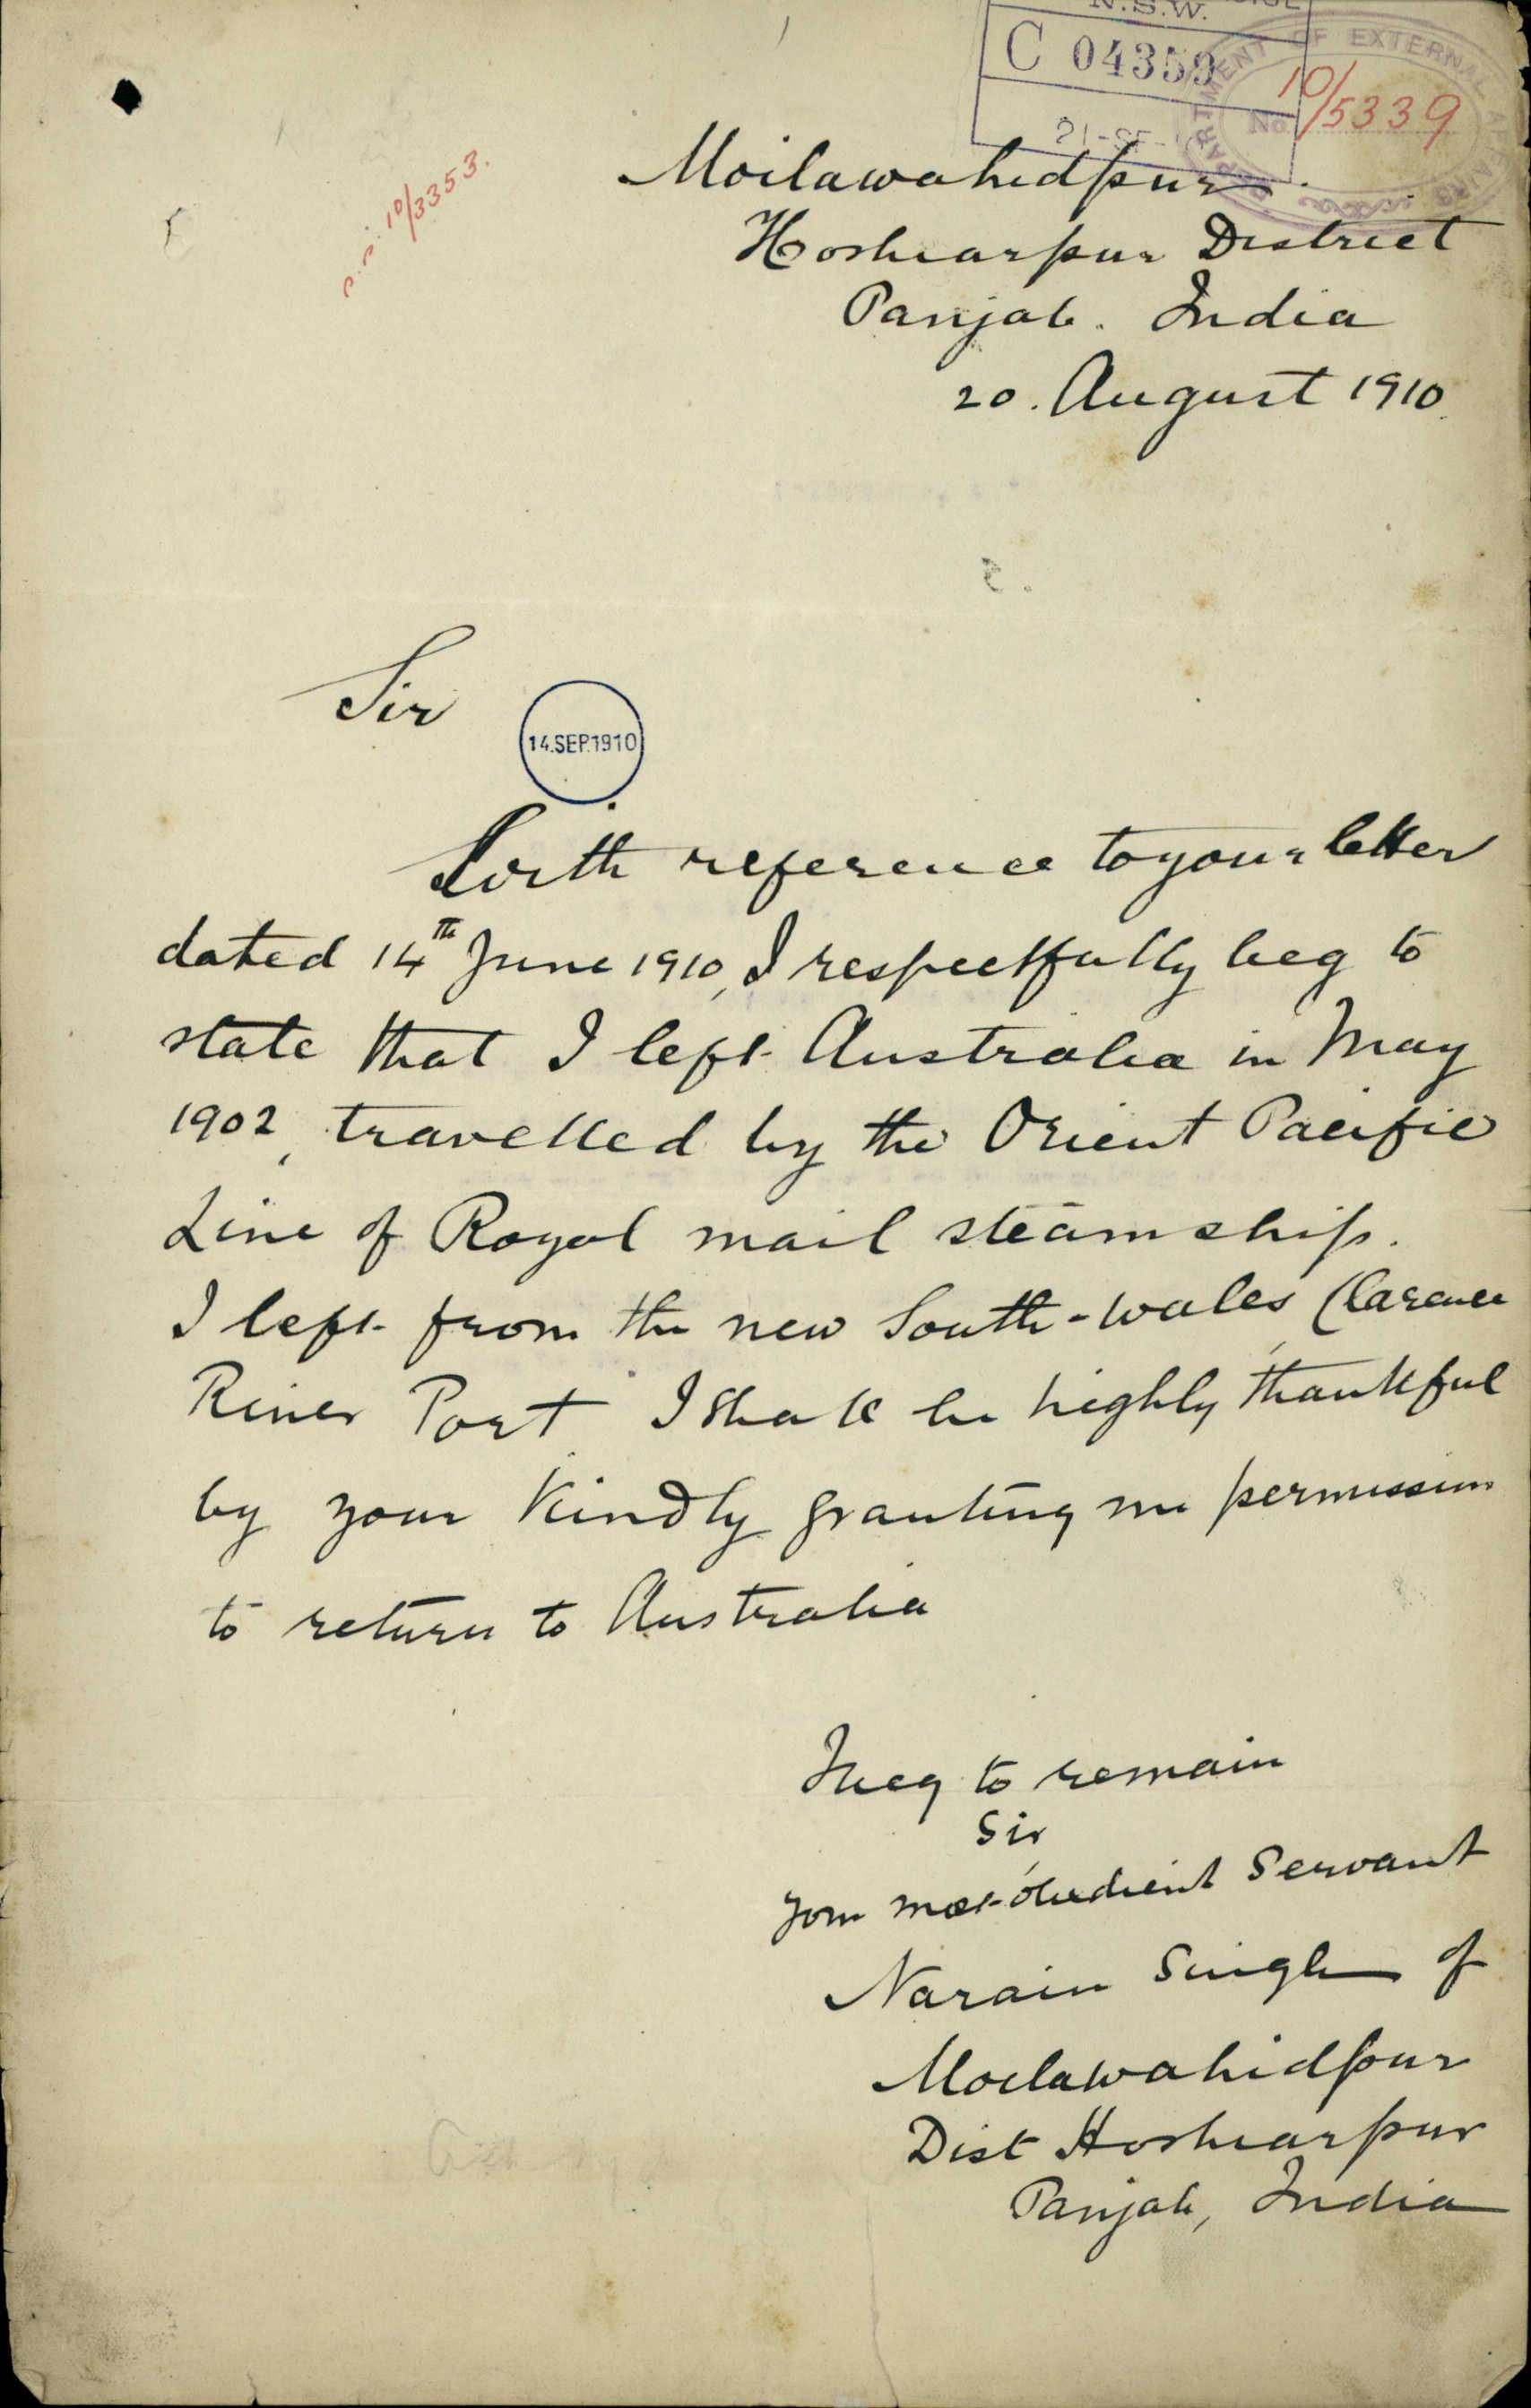 N.S.W.
C 04359
DEPARTMENT OF EXTERNAL AFFAIRS
No. 10/5339
10/3353.
Moilawahidpur.
Hoshiarpur District
Panjab. India
20. August 1910.
Sir
14.SEP.1910
With reference to your letter
dated 14th June 1910, I respectfully beg to
state that I left Australia in May
1902, travelled by the Orient Pacific
Line of Royal mail steamship.
I left from the new South-wales, Clarence
River Port I shall be highly thankful
by your kindly granting me permission
to return to Australia
I beg to remain
Sir,
Your most obedient Servant
Narain Singh of
Moilawahidpur
Dist Hoshiarpur
Panjab, India